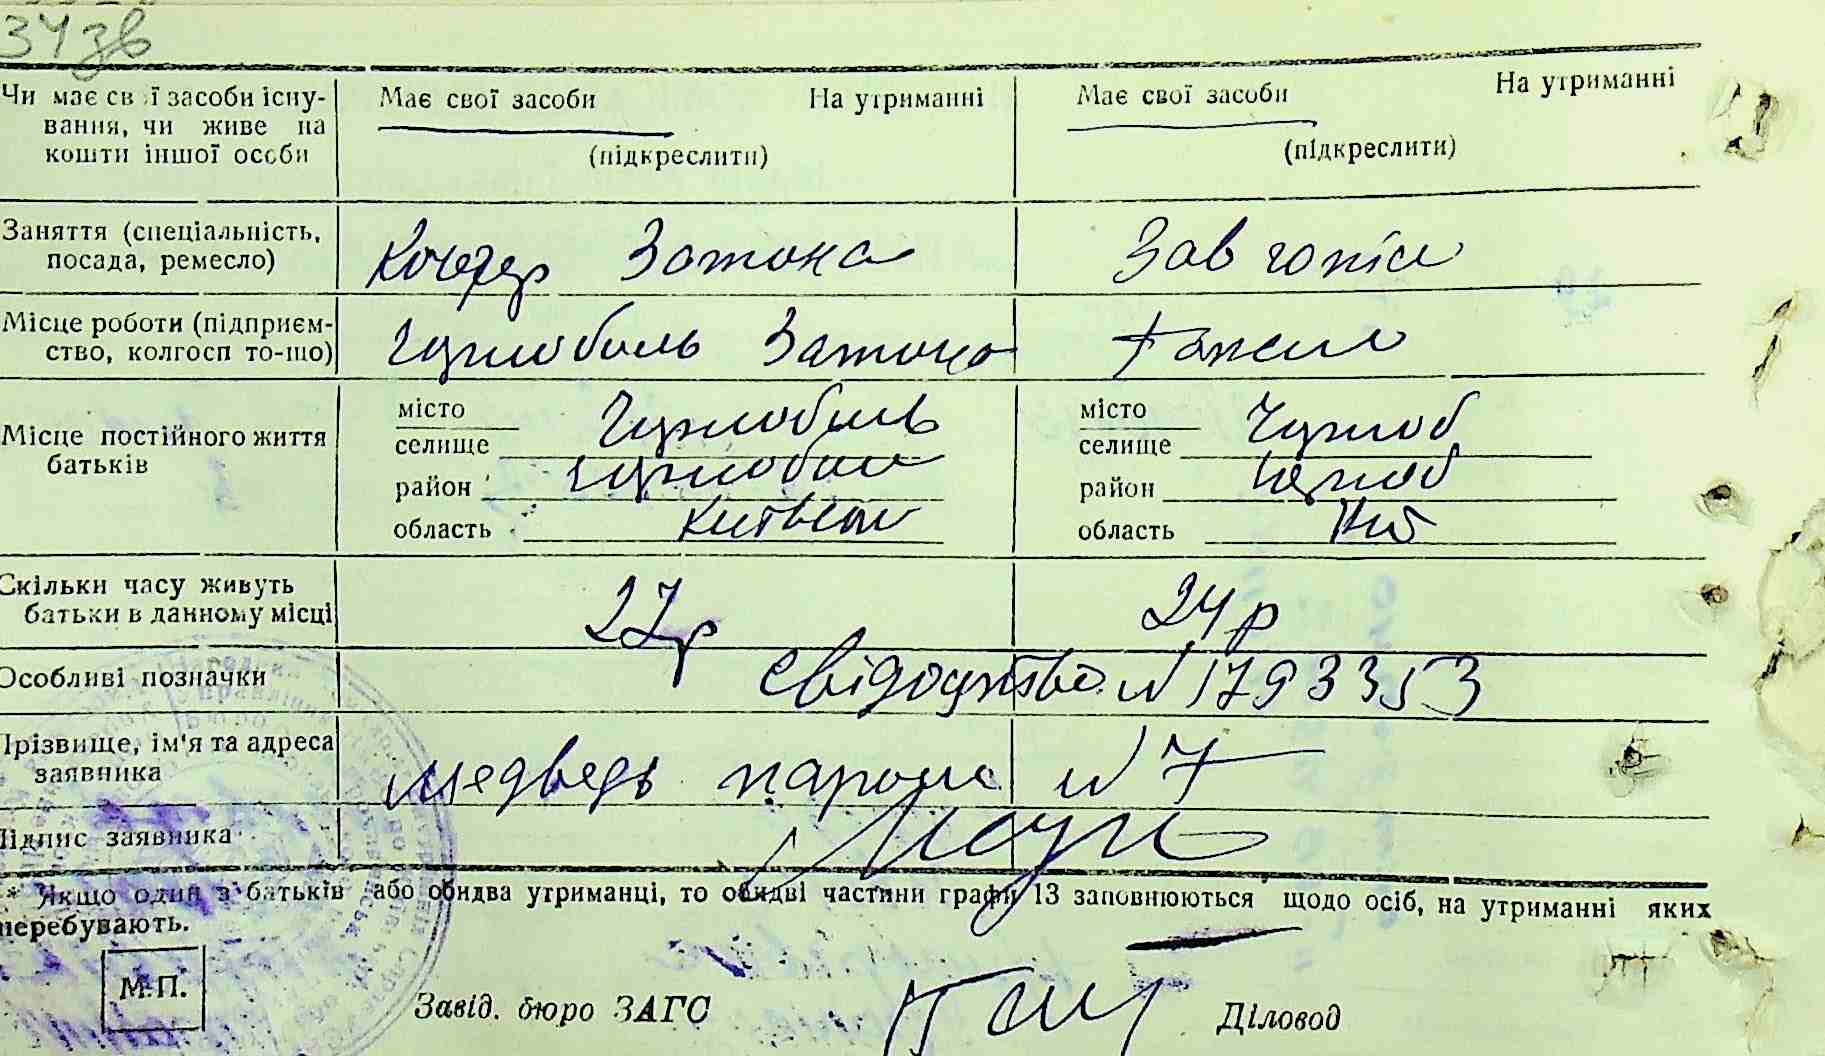 34 зв
Чи має свої засоби існу- Має свої засоби На утриманні Має свої засоби На утриманні
вання, чи живе на
кошти іншої особи (підкреслити) (підкреслити)
Заняття (спеціальність, посада, ремесло) Кочегар Затона Зав
Місце роботи (підприєм-
ство, колгосп то-що) Чорнобиль Затона
Місце постійного життя
батьків
місто Чорнобиль місто Чорноб
селище селище
район Чорнобил район Чорноб
область Київськ область Киів
Скільки часу живуть
батьки в данному місці 27р 24р
Особливі позначки свідоцтво N 1793353
Прізвище, ім'я та адреса
заявника медведь N 7
Підпис заявника
* Якщо один з батьків або обидва утриманці, то обидві частини графи 13 заповнюються щодо осіб, на утриманні яких
перебувають.
М.П.
Завід. бюро ЗАГС Діловод